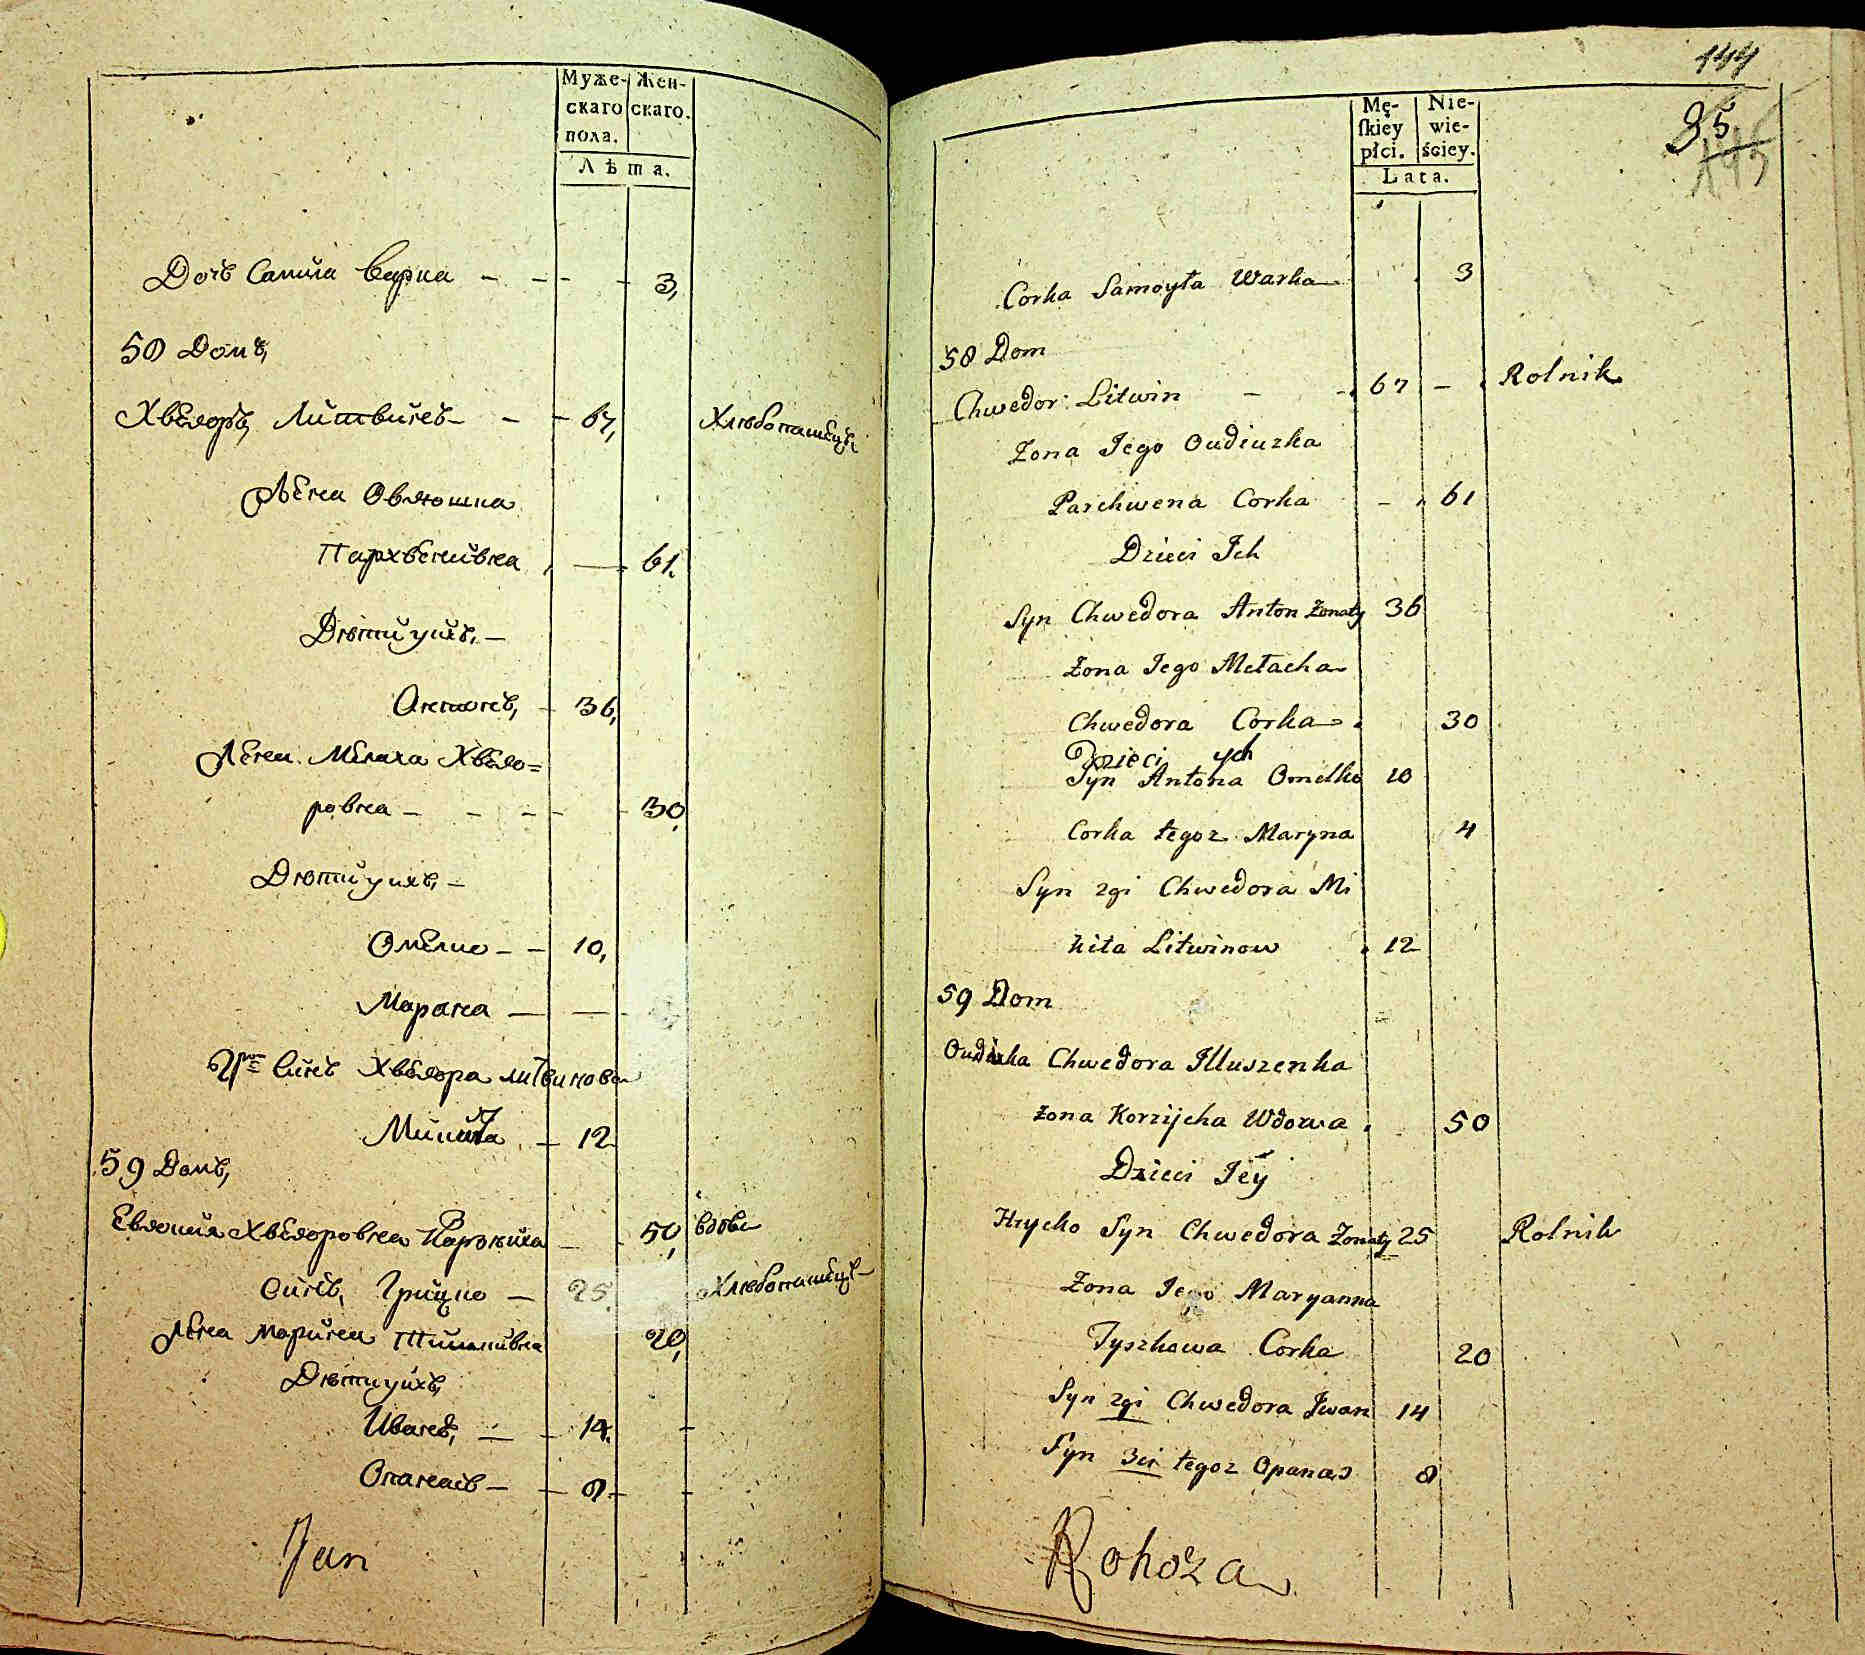 Муже- Жен-
скаго скаго.
пола.
Лѣта.
Дочь Самійла Варка - - - - 3,
58 Домъ,
Хведоръ, Литвинъ - - - 67, Хлебопашецъ
Жена Овдюшка
Пархвенивна - 61.
Дѣти ущхъ, -
Антонъ, - 36,
Жена Мелаха Хведо=
ровна - - - - - 30,
Дѣти ущхъ, -
Омелко - - 10,
Марына - -
Хведора литвинова
Микита - 12
59 Домъ,
Евдокия Хведоровна - - 50, вдова
Синъ, Грицко - 25. Хлебопашецъ -
Жена Марина Тишкивна 20,
Дѣти ущхъ,
Иванъ, - - 14. -
Опанасъ - - 8. -
Jan
144
95
Mę- Nie-
ſkiey wie-
płci. ściey.
Lata.
Corka Samoyła Warka 3
58 Dom
Chwedor Litwin - - 67 - Rolnik
Zona Jego Oudiuzka
Parchwena Corka - 61
Dzieci Ich
Syn Chwedora Anton Zonaty 36
Zona Jego Mełacha
Chwedora Corka 30
Dzieci ych
Syn Antona Omelko 10
Corka tegoz Maryna 4
Syn 2gi Chwedora Mi
kita Litwinow 12
59 Dom
Chwedora Illuszenka
Zona Korzijcha Wdowa 50
Dzieci Jey
Hrycko Syn Chwedora Zonaty 25 Rolnik
Zona Jego Maryanna
Tyszkowa Corka 20
Syn 2gi Chwedora Jwan 14
Syn 3ci tegoz Opanas 8
Rohoza